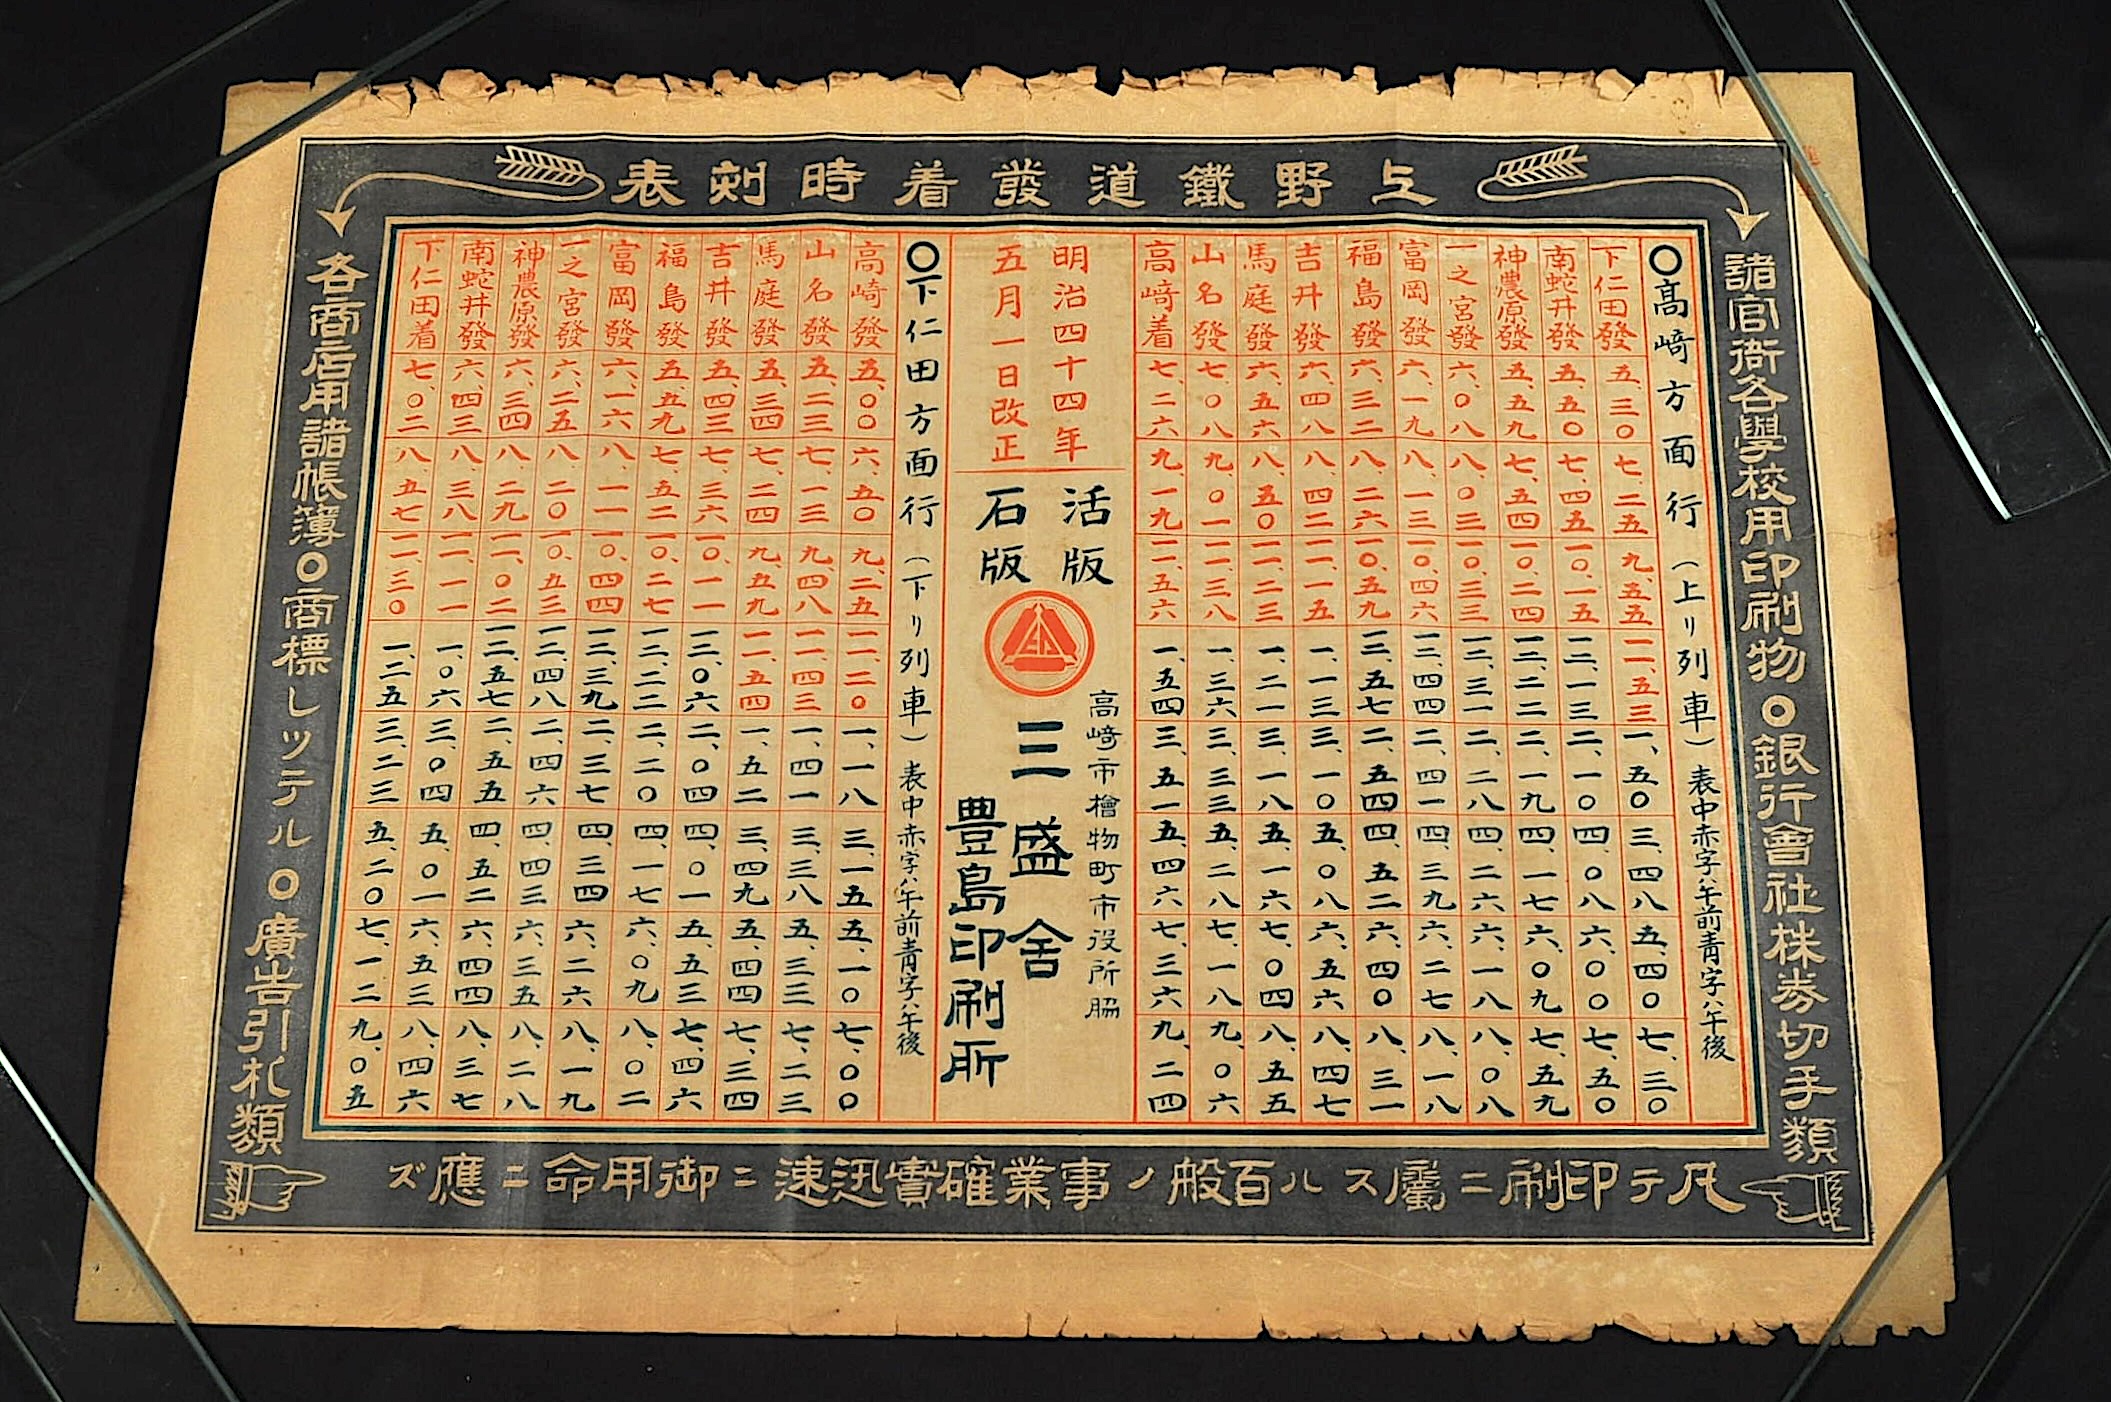 上野鐵道發着時刻表
諸官衙各學校用印刷物〇銀行會社株券切手類
〇高﨑方面行(上リ列車)表中赤字ハ午前青字ハ午後
下仁田發 五、三〇 七、二五 九、五五 一一、五三 一、五〇 三、四八 五、四〇 七、三〇
南蛇井發 五、五〇 七、四五 一〇、一五 一二、一三 二、一〇 四、〇八 六、〇〇 七、五〇
神農原發 五、五九 七、五四 一〇、二四 一二、二二 二、一九 四、一七 六、〇九 七、五九
一之宮發 六、〇八 八、〇三 一〇、三三 一二、三一 二、二八 四、二六 六、一八 八、〇八
富岡發 六、一九 八、一三 一〇、四六 一二、四四 二、四一 四、三九 六、二七 八、一八
福島發 六、三二 八、二六 一〇、五九 一二、五七 二、五四 四、五二 六、四〇 八、三一
吉井發 六、四八 八、四二 一一、一五 一、一三 三、一〇 五、〇八 六、五六 八、四七
馬庭發 六、五六 八、五〇 一一、二三 一、二一 三、一八 五、一六 七、〇四 八、五五
山名發 七、〇八 九、〇一 一一、三八 一、三六 三、三三 五、二八 七、一八 九、〇六
高﨑着 七、二六 九、一九 一一、五六 一、五四 三、五一 五、四六 七、三六 九、二四
明治四十四年
五月一日改正
活版
石版
高﨑市檜物町市役所脇
三盛舍
豊島印刷所
〇下仁田方面行(下リ列車)表中赤字ハ午前青字ハ午後
高﨑發 五、〇〇 六、五〇 九、二五 一一、二〇 一、一八 三、一五 五、一〇 七、〇〇
山名發 五、二三 七、一三 九、四八 一一、四三 一、四一 三、三八 五、三三 七、二三
馬庭發 五、三四 七、二四 九、五九 一一、五四 一、五二 三、四九 五、四四 七、三四
吉井發 五、四三 七、三六 一〇、一一 一二、〇六 二、〇四 四、〇一 五、五三 七、四六
福島發 五、五九 七、五二 一〇、二七 一二、二二 二、二〇 四、一七 六、〇九 八、〇二
富岡發 六、一六 八、一一 一〇、四四 一二、三九 二、三七 四、三四 六、二六 八、一九
一之宮發 六、二五 八、二〇 一〇、五三 一二、四八 二、四六 四、四三 六、三五 八、二八
神農原發 六、三四 八、二九 一一、〇二 一二、五七 二、五五 四、五二 六、四四 八、三七
南蛇井發 六、四三 八、三八 一一、一一 一、〇六 三、〇四 五、〇一 六、五三 八、四六
下仁田着 七、〇二 八、五七 一一、三〇 一、二五 三、二三 五、二〇 七、一二 九、〇五
各商店用諸帳簿〇商標レッテル〇廣告引札類
凡テ印刷ニ屬スル百般ノ事業確實迅速ニ御用命ニ應ズ